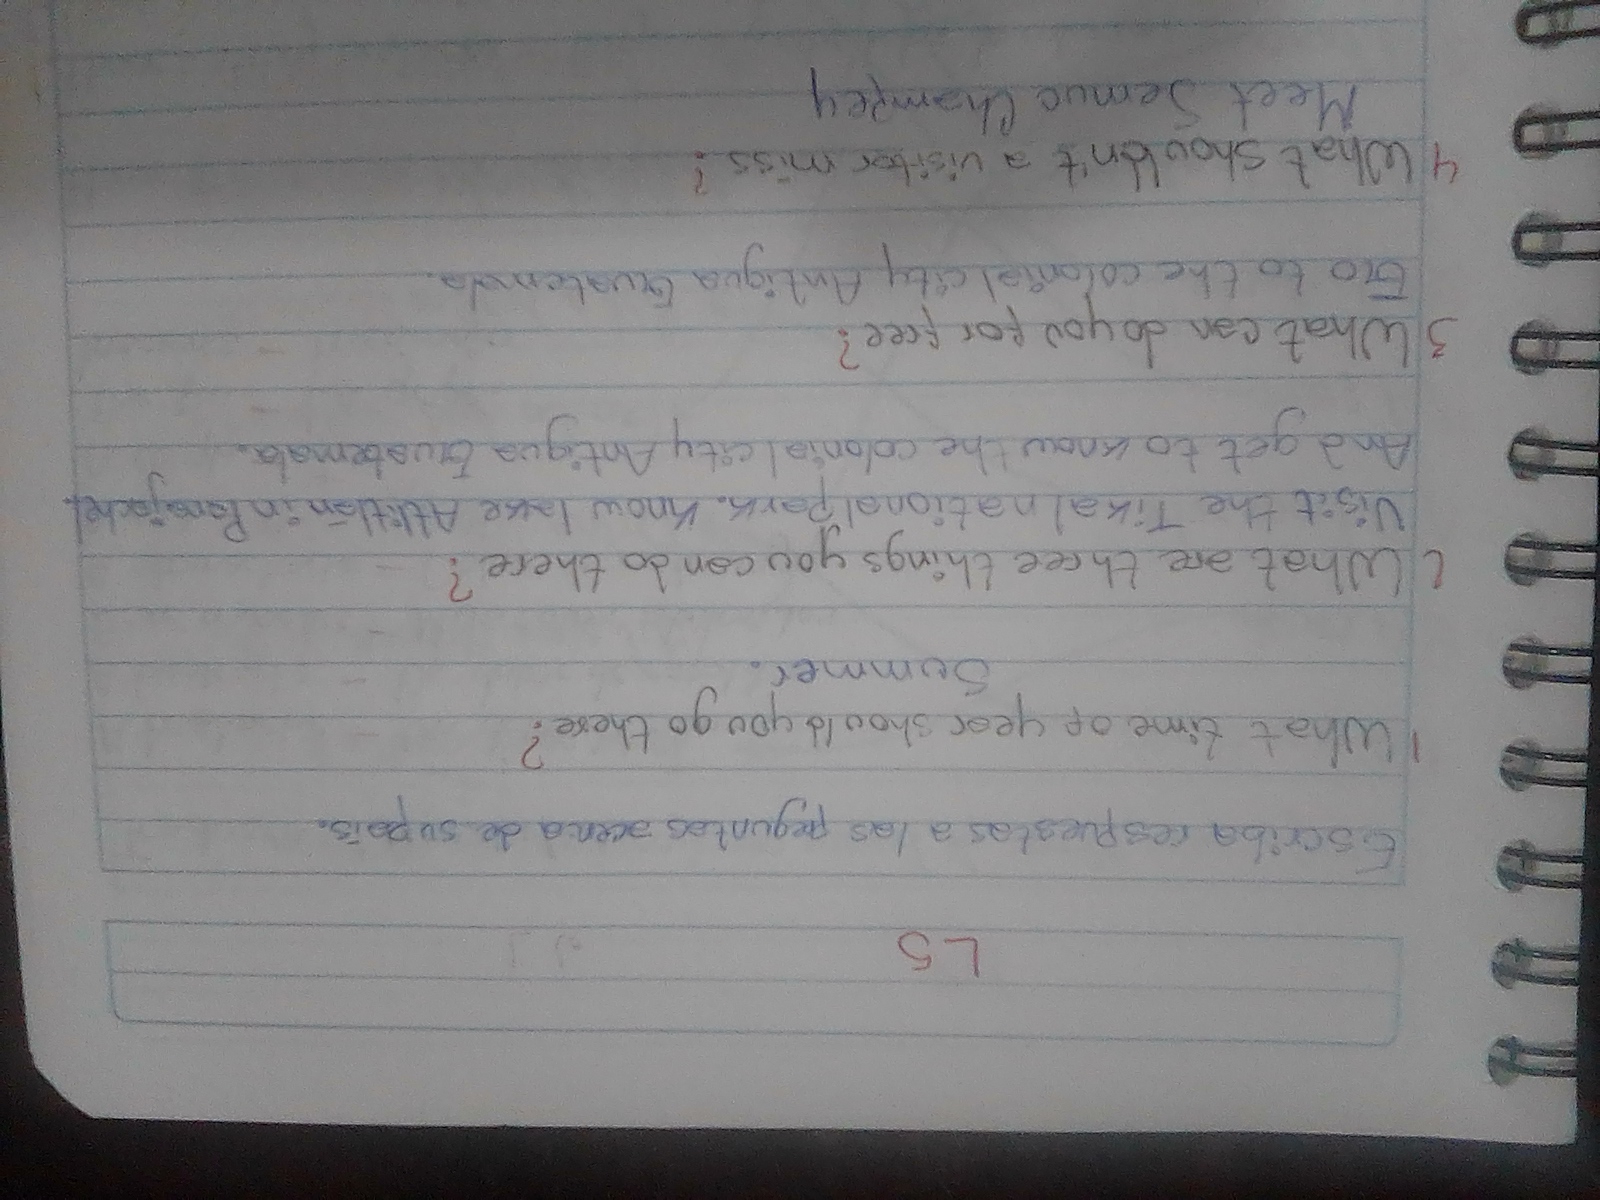 L5
Escriba respuestas a las preguntas acerca de su país.
1 What time of year should you go there?
Summer.
2 What are three things you can do there?
Visit the Tikal national Park. Know lake Atitlán in Panajachel.
And get to know the colonial city Antigua Guatemala.
3 What can do you for free?
Go to the colonial city Antigua Guatemala.
4 What shouldn't a visitor miss?
Meet Semuc Champey